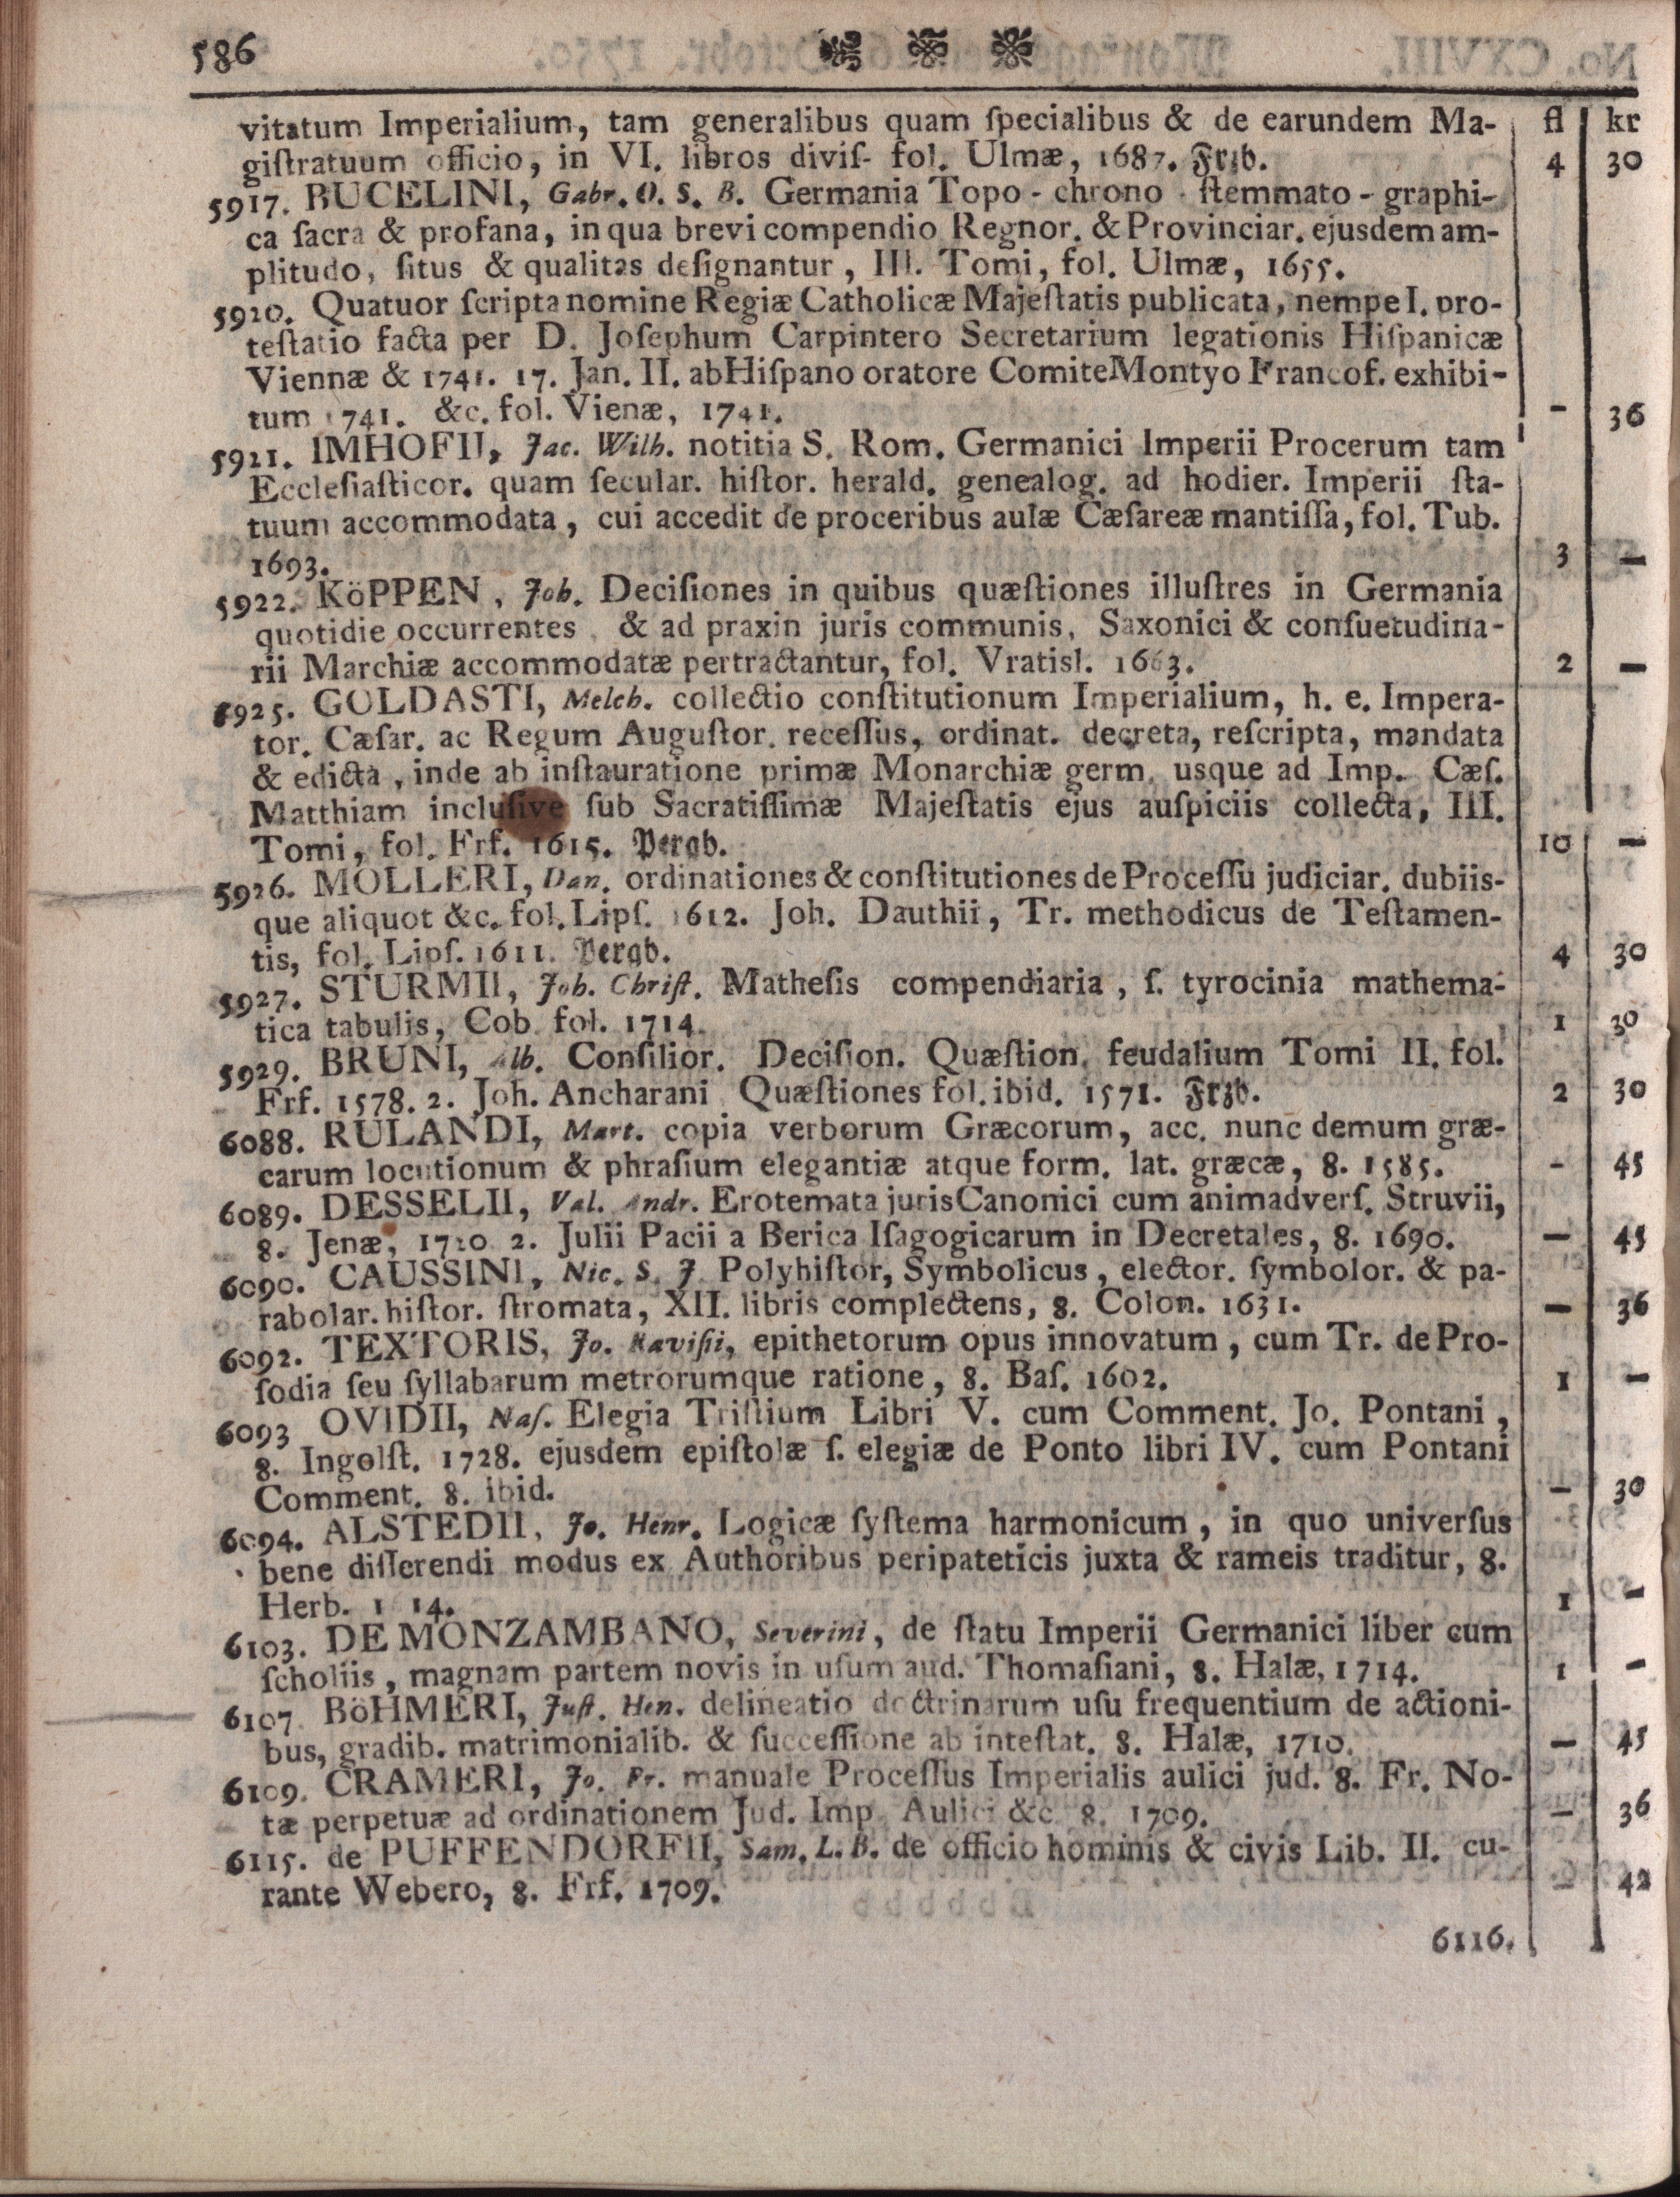 586
vitatum Imperialium, tam generalibus quam ſpecialibus & de earundem Ma- fl kr
giſtratuum officio, in VI. libros diviſ- fol. Ulmæ, 1687. Frzb. 4 30
5917. BUCELINI, Gabr. O. S. B. Germania Topo - chrono - ſtemmato - graphi-
ca ſacra & profana, in qua brevi compendio Regnor. & Provinciar. ejusdem am-
plitudo, ſitus & qualitas deſignantur, III. Tomi, fol. Ulmæ, 1655.
5920. Quatuor ſcripta nomine Regiæ Catholicæ Majeſtatis publicata, nempe I. pro-
teſtatio facta per D. Joſephum Carpintero Secretarium legationis Hiſpanicæ
Viennæ & 1741. 17. Jan. II. ab Hiſpano oratore Comite Montyo Francof. exhibi-
tum 1741. &c. fol. Vienæ, 1741. - 36
5921. IMHOFII, Jac. Wilh. notitia S. Rom. Germanici Imperii Procerum tam
Eccleſiaſticor. quam ſecular. hiſtor. herald. genealog. ad hodier. Imperii ſta-
tuum accommodata, cui accedit de proceribus aulæ Cæſareæ mantiſſa, fol. Tub.
1693. 3 —
5922. KöPPEN, Joh. Deciſiones in quibus quæſtiones illuſtres in Germania
quotidie occurrentes & ad praxin juris communis, Saxonici & conſuetudina-
rii Marchiæ accommodatæ pertractantur, fol. Vratisl. 1663. 2 —
5925. GOLDASTI, Melch. collectio conſtitutionum Imperialium, h. e. Impera-
tor. Cæſar. ac Regum Auguſtor. receſſus, ordinat. decreta, reſcripta, mandata
& edicta, inde ab inſtauratione primæ Monarchiæ germ. usque ad Imp. Cæſ.
Matthiam incluſive ſub Sacratiſſimæ Majeſtatis ejus auſpiciis collecta, III.
Tomi, fol. Frf. 1615. Pergb. 10 —
5926. MOLLERI, Dan. ordinationes & conſtitutiones de Proceſſu judiciar. dubiis-
que aliquot &c. fol. Lipſ. 1612. Joh. Dauthii, Tr. methodicus de Teſtamen-
tis, fol. Lipſ. 1611. Pergb. 4 30
5927. STURMII, Joh. Chriſt. Matheſis compendiaria, ſ. tyrocinia mathema-
tica tabulis, Cob. fol. 1714. 1 30
5929. BRUNI, Alb. Conſilior. Deciſion. Quæſtion. feudalium Tomi II. fol.
Frf. 1578. 2. Joh. Ancharani Quæſtiones fol. ibid. 1571. Frzb. 2 30
6088. RULANDI, Mart. copia verborum Græcorum, acc. nunc demum græ-
carum locutionum & phraſium elegantiæ atque form. lat. græcæ, 8. 1585. - 45
6089. DESSELII, Val. Andr. Erotemata juris Canonici cum animadverſ. Struvii,
8. Jenæ, 1720 2. Julii Pacii a Berica Iſagogicarum in Decretales, 8. 1690. — 45
6090. CAUSSINI, Nic. S. J. Polyhiſtor, Symbolicus, elector. ſymbolor. & pa-
rabolar. hiſtor. ſtromata, XII. libris complectens, 8. Colon. 1631. — 36
6092. TEXTORIS, Jo. Raviſii, epithetorum opus innovatum, cum Tr. de Pro-
ſodia ſeu ſyllabarum metrorumque ratione, 8. Baſ. 1602. 1 —
6093 OVIDII, Naſ. Elegia Triſtium Libri V. cum Comment. Jo. Pontani,
8. Ingolſt. 1728. ejusdem epiſtolæ ſ. elegiæ de Ponto libri IV. cum Pontani
Comment. 8. ibid. — 30
6094. ALSTEDII, Jo. Henr. Logicæ ſyſtema harmonicum, in quo univerſus
bene diſſerendi modus ex Authoribus peripateticis juxta & rameis traditur, 8.
Herb. 1 14. 1 -
6103. DE MONZAMBANO, Severini, de ſtatu Imperii Germanici liber cum
ſcholiis, magnam partem novis in uſum aud. Thomaſiani, 8. Halæ, 1714. 1 -
6107 BöHMERI, Juſt. Hen. delineatio doctrinarum uſu frequentium de actioni-
bus, gradib. matrimonialib. & ſucceſſione ab inteſtat. 8. Halæ, 1710. — 45
6109. CRAMERI, Jo. Fr. manuale Proceſſus Imperialis aulici jud. 8. Fr. No-
tæ perpetuæ ad ordinationem Jud. Imp. Aulici &c. 8. 1709. — 36
6115. de PUFFENDORFII, Sam. L. B. de officio hominis & civis Lib. II. cu-
rante Webero, 8. Frf. 1709. — 42
6116.